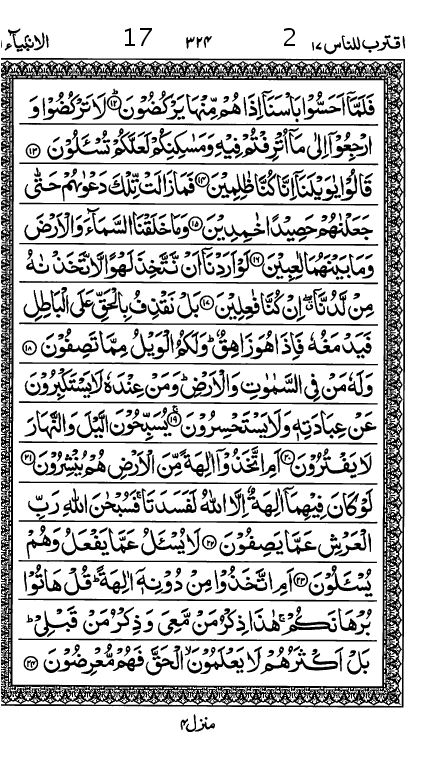 اقترب للناس ١٧ 2 ٣٢٤ 17 الانبياء
فَلَمَّاۤ اَحَسُّوْا بَاْسَنَاۤ اِذَا هُمْ مِّنْهَا يَرْكُضُوْنَ ؕ‏﴿۱۲﴾ لَا تَرْكُضُوْا وَ
ارْجِعُوْۤا اِلٰى مَاۤ اُتْرِفْتُمْ فِيْهِ وَمَسٰكِنِكُمْ لَعَلَّكُمْ تُسْـَٔلُوْنَ ﴿۱۳﴾
قَالُوْا يٰوَيْلَنَاۤ اِنَّا كُنَّا ظٰلِمِيْنَ ﴿۱۴﴾ فَمَا زَالَتْ تِّلْكَ دَعْوٰٮهُمْ حَتّٰى
جَعَلْنٰهُمْ حَصِيْدًا خٰمِدِيْنَ ﴿۱۵﴾ وَمَا خَلَقْنَا السَّمَآءَ وَالْاَرْضَ
وَمَا بَيْنَهُمَا لٰعِبِيْنَ ﴿۱۶﴾ لَوْ اَرَدْنَاۤ اَنْ نَّتَّخِذَ لَهْوًا لَّاتَّخَذْنٰهُ
مِنْ لَّدُنَّاۤ ۖ اِنْ كُنَّا فٰعِلِيْنَ ﴿۱۷﴾ بَلْ نَقْذِفُ بِالْحَقِّ عَلَى الْبَاطِلِ
فَيَدْمَغُهٗ فَاِذَا هُوَ زَاهِقٌ ؕ وَلَكُمُ الْوَيْلُ مِمَّا تَصِفُوْنَ ﴿۱۸﴾
وَلَهٗ مَنْ فِى السَّمٰوٰتِ وَالْاَرْضِ ؕ وَمَنْ عِنْدَهٗ لَا يَسْتَكْبِرُوْنَ
عَنْ عِبَادَتِهٖ وَلَا يَسْتَحْسِرُوْنَ ۚ‏﴿۱۹﴾ يُسَبِّحُوْنَ الَّيْلَ وَالنَّهَارَ
لَا يَفْتُرُوْنَ ﴿۲۰﴾ اَمِ اتَّخَذُوْۤا اٰلِهَةً مِّنَ الْاَرْضِ هُمْ يُنْشِرُوْنَ ﴿۲۱﴾
لَوْ كَانَ فِيْهِمَاۤ اٰلِهَةٌ اِلَّا اللّٰهُ لَفَسَدَتَا ۚ فَسُبْحٰنَ اللّٰهِ رَبِّ
الْعَرْشِ عَمَّا يَصِفُوْنَ ﴿۲۲﴾ لَا يُسْـَٔلُ عَمَّا يَفْعَلُ وَهُمْ
يُسْـَٔلُوْنَ ﴿۲۳﴾ اَمِ اتَّخَذُوْا مِنْ دُوْنِهٖۤ اٰلِهَةً ؕ قُلْ هَاتُوْا
بُرْهَانَكُمْ ۚ هٰذَا ذِكْرُ مَنْ مَّعِىَ وَذِكْرُ مَنْ قَبْلِىْ ؕ
بَلْ اَكْثَرُهُمْ لَا يَعْلَمُوْنَ ۙ الْحَقَّ فَهُمْ مُّعْرِضُوْنَ ﴿۲۴﴾
منزل ۴